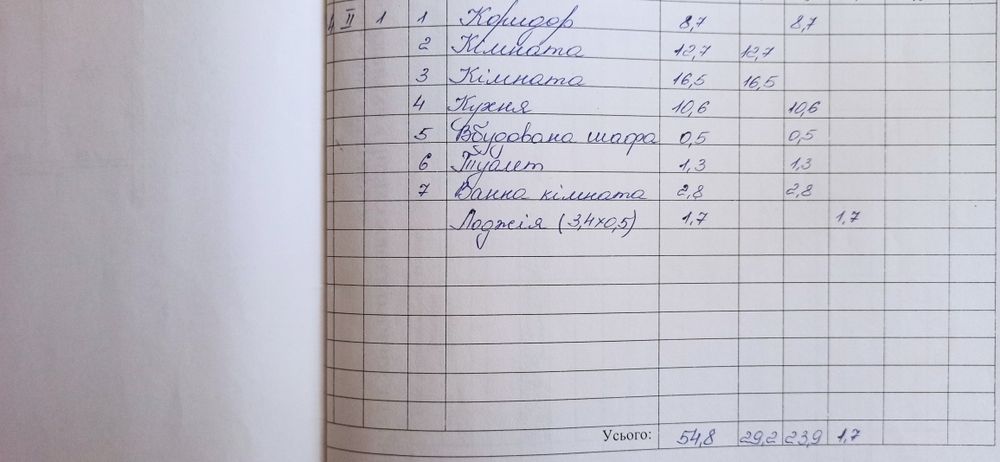 4 II 1 1 Коридор 8,7 8,7
2 Кімната 12,7 12,7
3 Кімната 16,5 16,5
4 Кухня 10,6 10,6
5 Вбудована шафа 0,5 0,5
6 Туалет 1,3 1,3
7 Ванна кімната 2,8 2,8
Лоджія (3,4х0,5) 1,7 1,7
Усього: 54,8 29,2 23,9 1,7